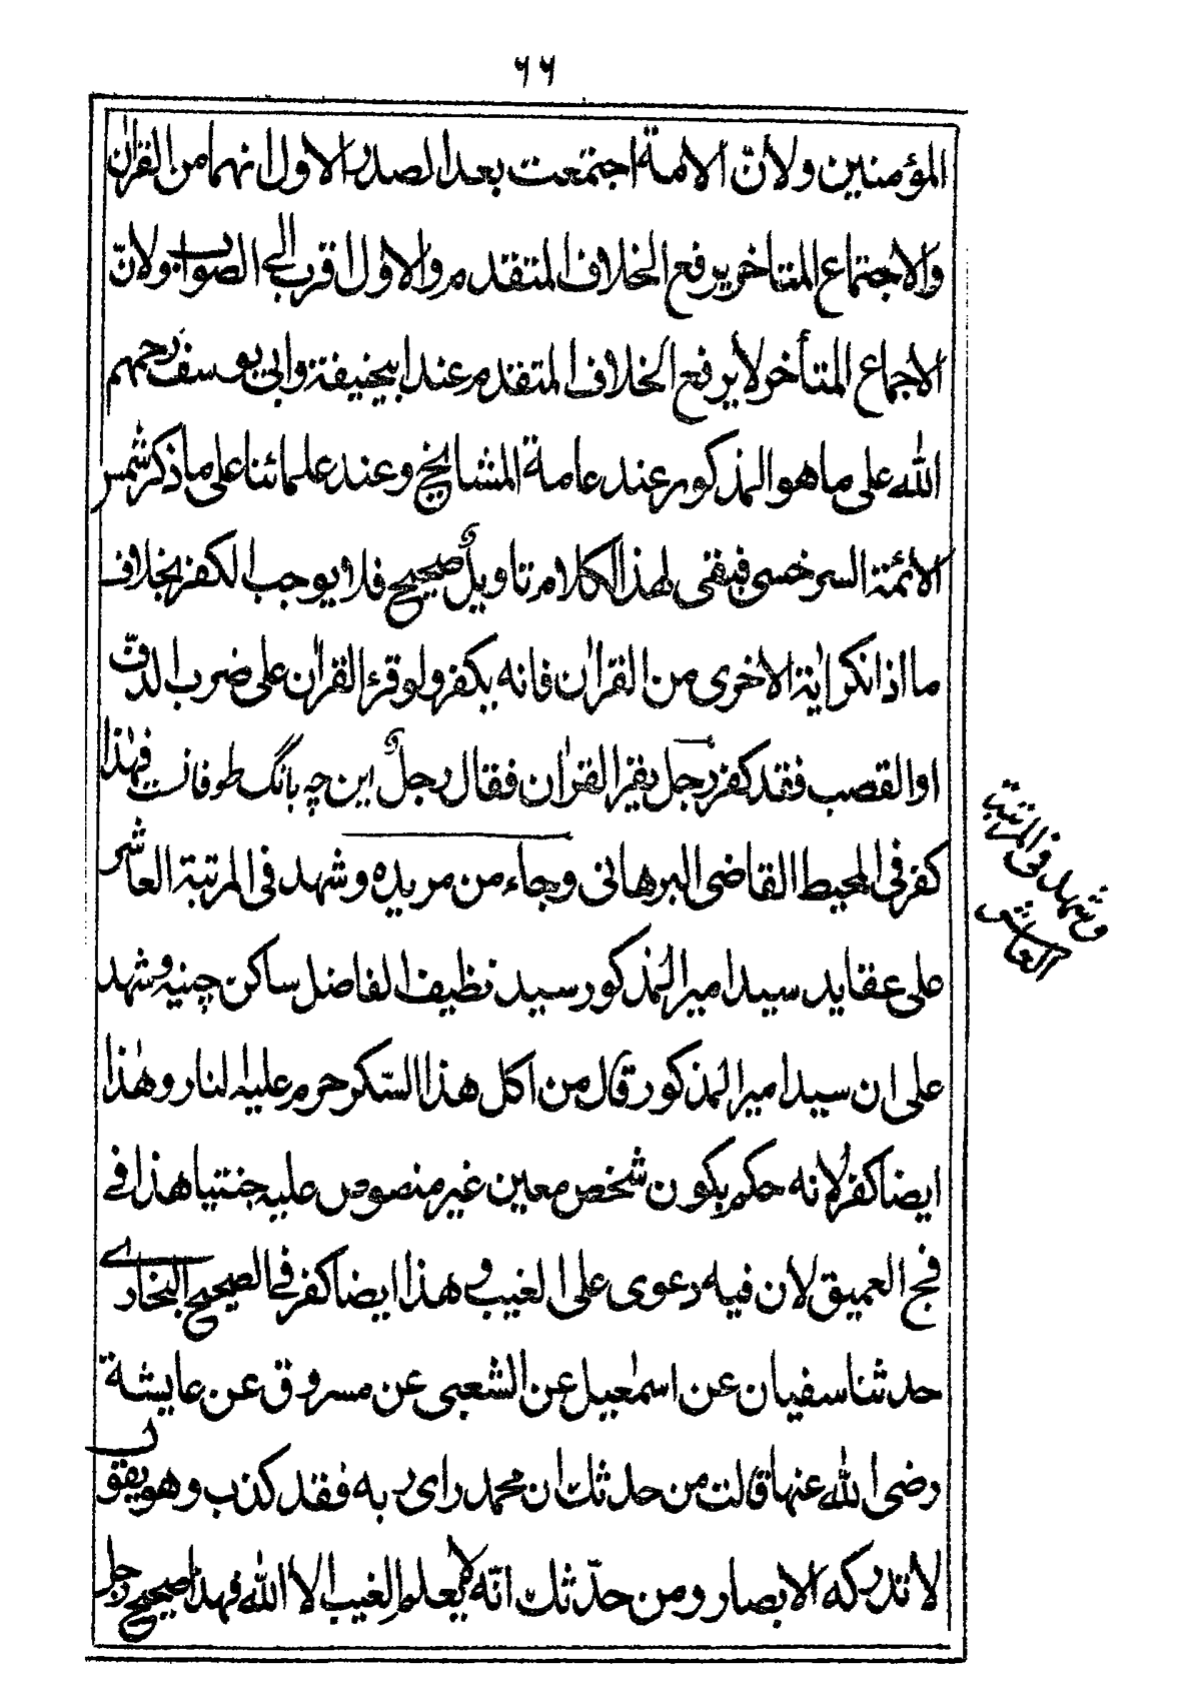 ٦٦
المؤمنين ولانّ الامة اجتمعت بعد الصدر الاول انهما من القرآن
والاجتماع المتاخر يرفع الخلاف المتقدم والاول اقرب الى الصواب ولانّ
الاجماع المتأخر لا يرفع الخلاف المتقدم عند ابيحنيفة وابى يوسف رحمهم
الله على ما هو المذكور عند عامة المشايخ وعند علمائنا على ما ذكر شمس
الائمة السرخسى فبقى لهذا الكلام تاويلٌ صحيح فلا يوجب الكفر بخلاف
ما اذا نكر اية الاخرى من القرآن فانه يكفر ولو قرء القرآن على ضرب الدفّ
او القصب فقد كفر رجل يقرا القرآن فقال رجلٌ اين چه بانگ طوفانست فهذا
كفر فى المحيط القاضى البرهانى وجاء من مريده وشهد فى المرتبة العاشر
على عقايد سيد امير المذكور سيد نظيف الفاضل ساكن چنيه وشهد
على ان سيد امير المذكور قال من اكل هذا السّكر حرم عليه النار وهذا
ايضا كفر لانه حكم بكون شخص معين غير منصوص عليه جنتيا هذا فى
فج العميق لان فيه دعوى على الغيب وهذا ايضا كفر فى الصحيح البخارى
حدثنا سفيان عن اسمٰعيل عن الشعبى عن مسروق عن عايشة
رضى الله عنها قالت من حدثك ان محمد راى ربه فقد كذب وهو يقول
لا تدركه الابصار ومن حدّثك انّه لا يعلم الغيب الا الله فهذا صحيح رجل
وشهد فى المرتبة
العاشر